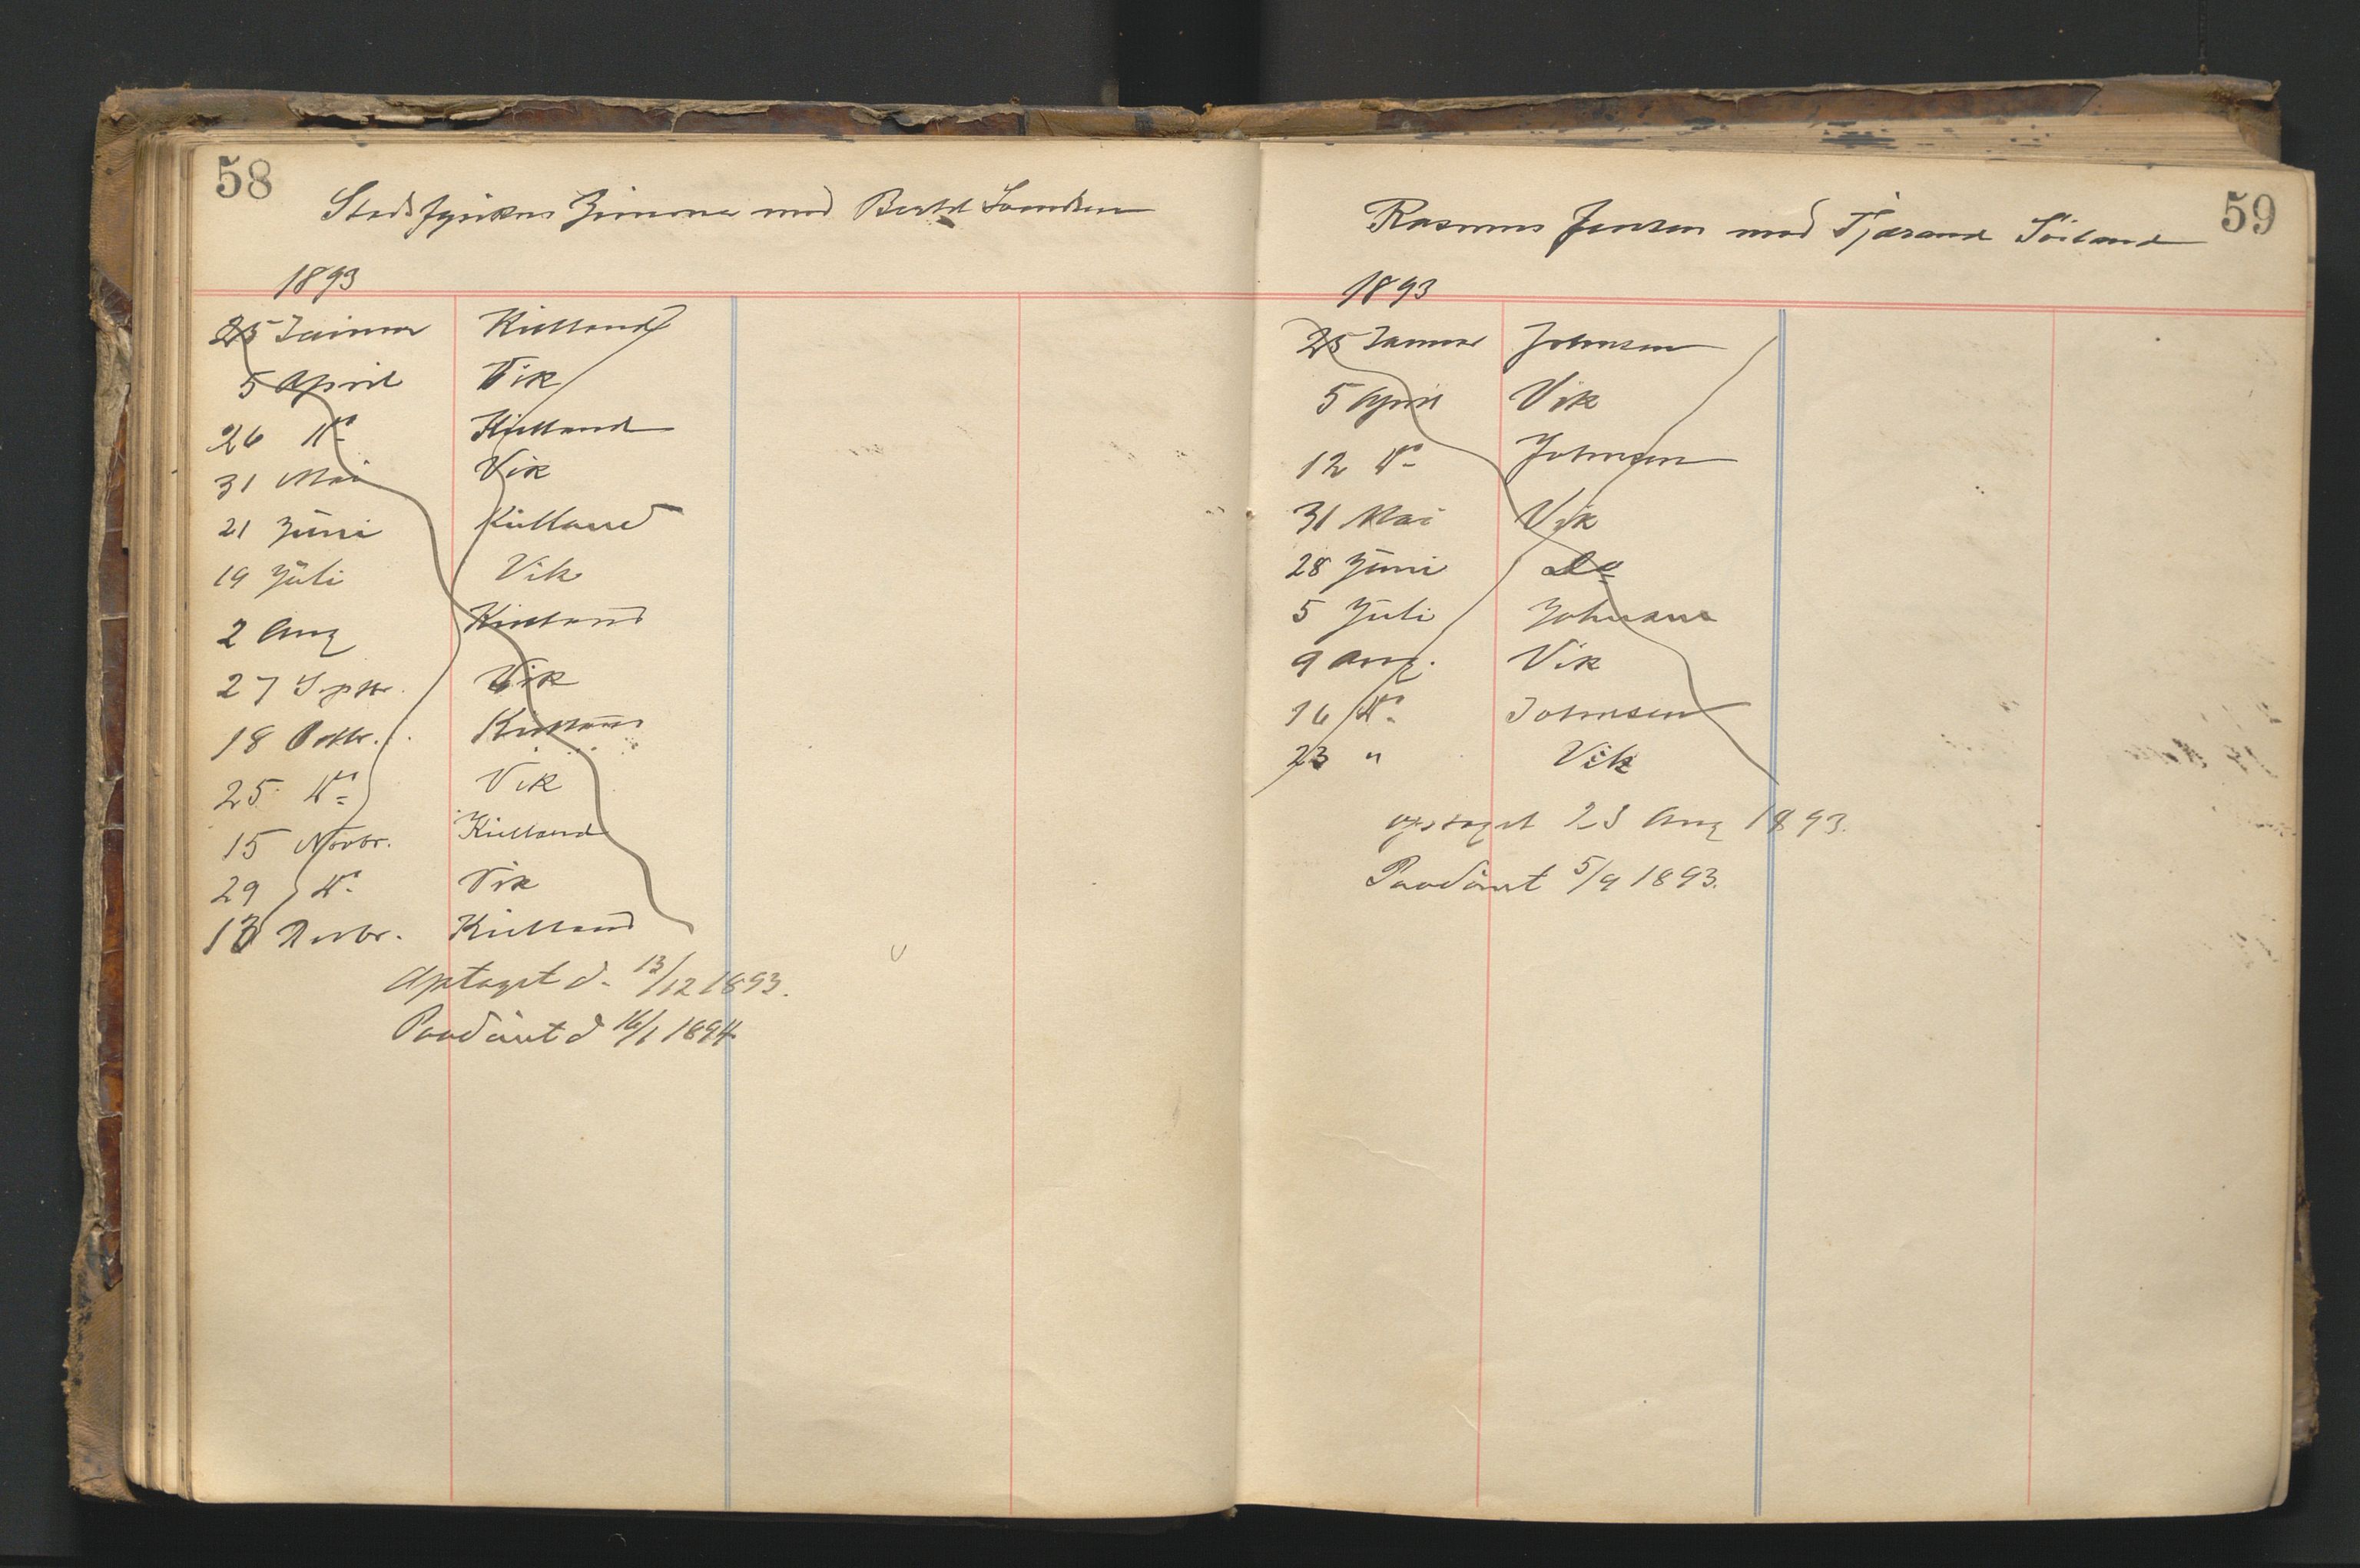 58
Stadsfysikus Zimmer mod Bertel Svendsen
1893
25 Januar Kielland
5 April Vik
26 do Kielland
31 Mai Vik
21 Juni Kielland
19 Juli Vik
2 Aug Kielland
27 Septbr. Vik
18 Octbr. Kielland
25 do Vik
15 Novbr. Kielland
29 do Vik
13 Decbr. Kielland
Optaget d. 13/12 1893.
Paadömt d 16/1 1894
59
Rasmus Jensen mod Tjerand
1893
25 Januar Johnsen
5 April Vik
12 do Johnsen
31 Mai Vik
28 Juni Do
5 Juli Johnsen
9 Aug. Vik
16 do Johnsen
23 " Vik
optaget 23 Aug 1893.
Paadömt 5/9 1893.